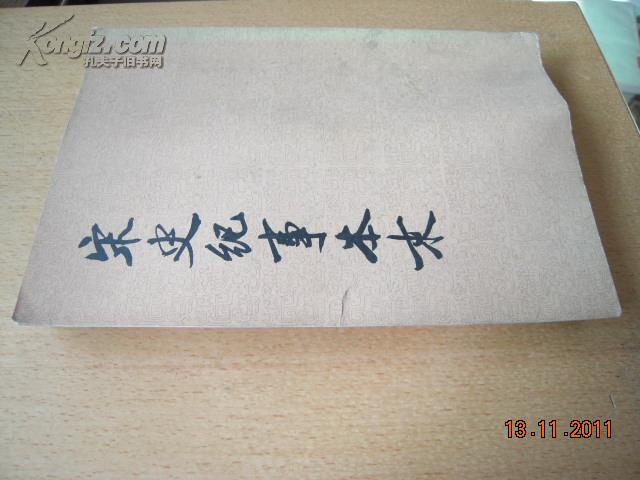 Kongfz.com
孔夫子旧书网
宋史纪事本末
13.11.2011